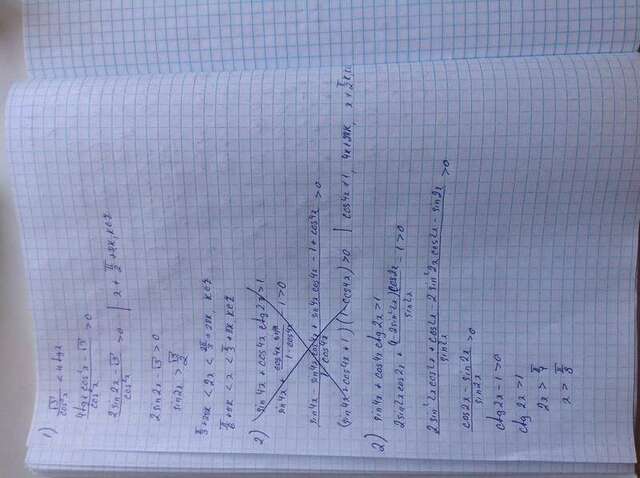 1) √3/cos²x < 4tgx
(4tgx cos²x - √3)/cos²x > 0
(2sin2x - √3)/cos²x > 0 | x ≠ π/2 + πk, k∈Z
2sin2x - √3 > 0
sin2x > √3/2
π/3 + 2πk < 2x < 2π/3 + 2πk, k∈Z
π/6 + πk < x < π/3 + πk, k∈Z
2) sin4x + cos4x ctg2x > 1
sin4x + (cos4x sin4x)/(1-cos4x) - 1 > 0
(sin4x - sin4x cos4x + sin4x cos4x - 1 + cos4x)/(1-cos4x) > 0
(sin4x + cos4x + 1)(1-cos4x) > 0 | cos4x ≠ 1,
2) sin4x + cos4x ctg2x > 1
2sin2x cos2x + ((1-2sin²2x)cos2x)/sin2x - 1 > 0
(2sin²2x cos2x + cos2x - 2sin²2x cos2x - sin2x)/sin2x > 0
(cos2x - sin2x)/sin2x > 0
ctg2x - 1 > 0
ctg2x > 1
2x > π/4
x > π/8